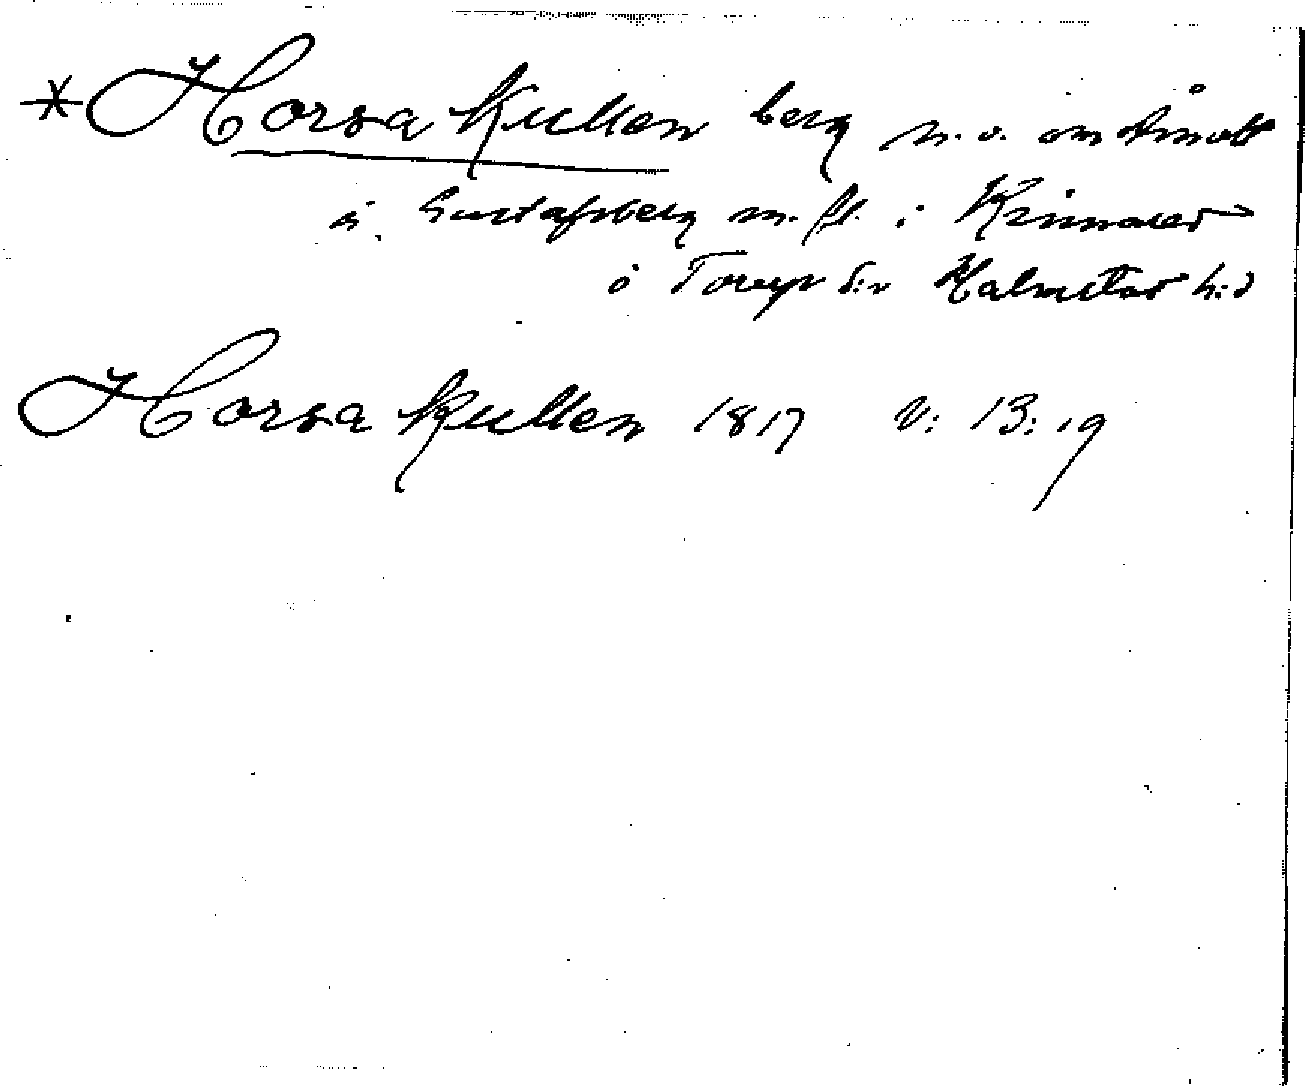 * Horsakullen berg n.v. om Åmot
å Gustafsberg m.fl. i Kinnared
o Torup s:n Halmstad h:d
Horsakullen 1817 V: 13: 19